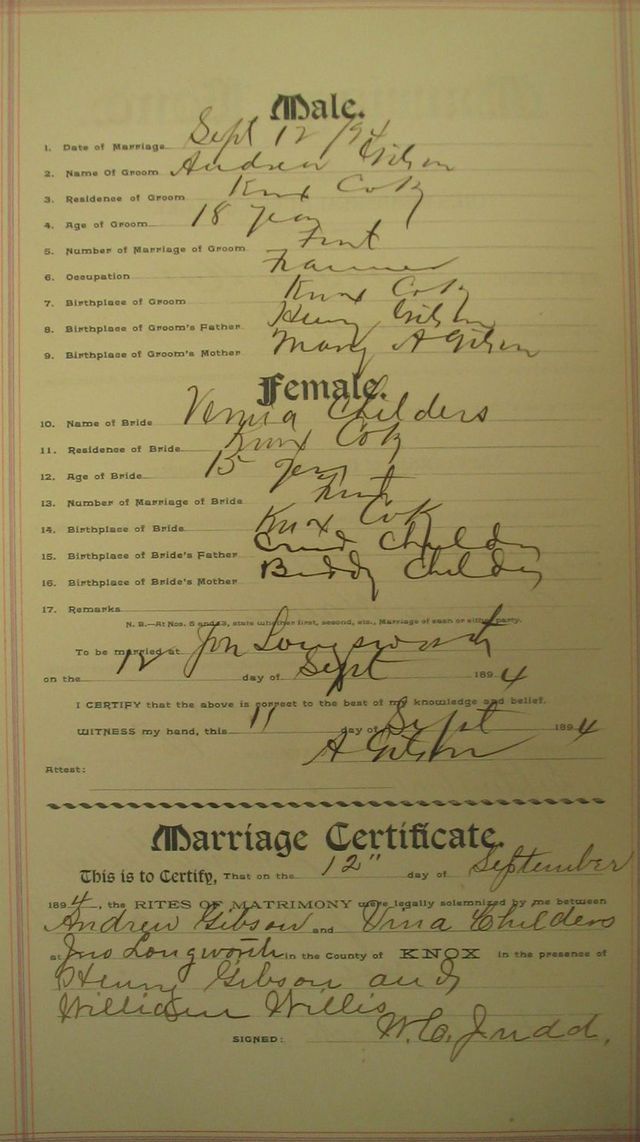 Male.
1. Date of Marriage Sept 12 /94
2. Name Of Groom Andrew Gibson
3. Residence of Groom Knox Co Ky
4. Age of Groom 18 years
5. Number of Marriage of Groom First
6. Occupation Farmer
7. Birthplace of Groom Knox Co Ky
8. Birthplace of Groom's Father Henry Gibson
9. Birthplace of Groom's Mother Mary A Gibson
Female.
10. Name of Bride Childers
11. Residence of Bride Knox Co Ky
12. Age of Bride 15 years
13. Number of Marriage of Bride First
14. Birthplace of Bride Knox Co Ky
15. Birthplace of Bride's Father Childers
16. Birthplace of Bride's Mother Biddy Childers
17. Remarks
N. B.—At Nos. 5 and 13, state whether first, second, etc., Marriage of each or either party.
To be married at Jno Longsworth
on the 12 day of Sept 1894
I CERTIFY that the above is correct to the best of my knowledge and belief.
WITNESS my hand, this 11 day of Sept 1894
A Gibson
Attest:
Marriage Certificate.
This is to Certify, That on the 12" day of September
1894, the RITES OF MATRIMONY were legally solemnized by me between
Andrew Gibson and Vina Childers
at Jno Longworth in the County of KNOX in the presence of
Henry Gibson and
William Willis
SIGNED: W. C. Judd.